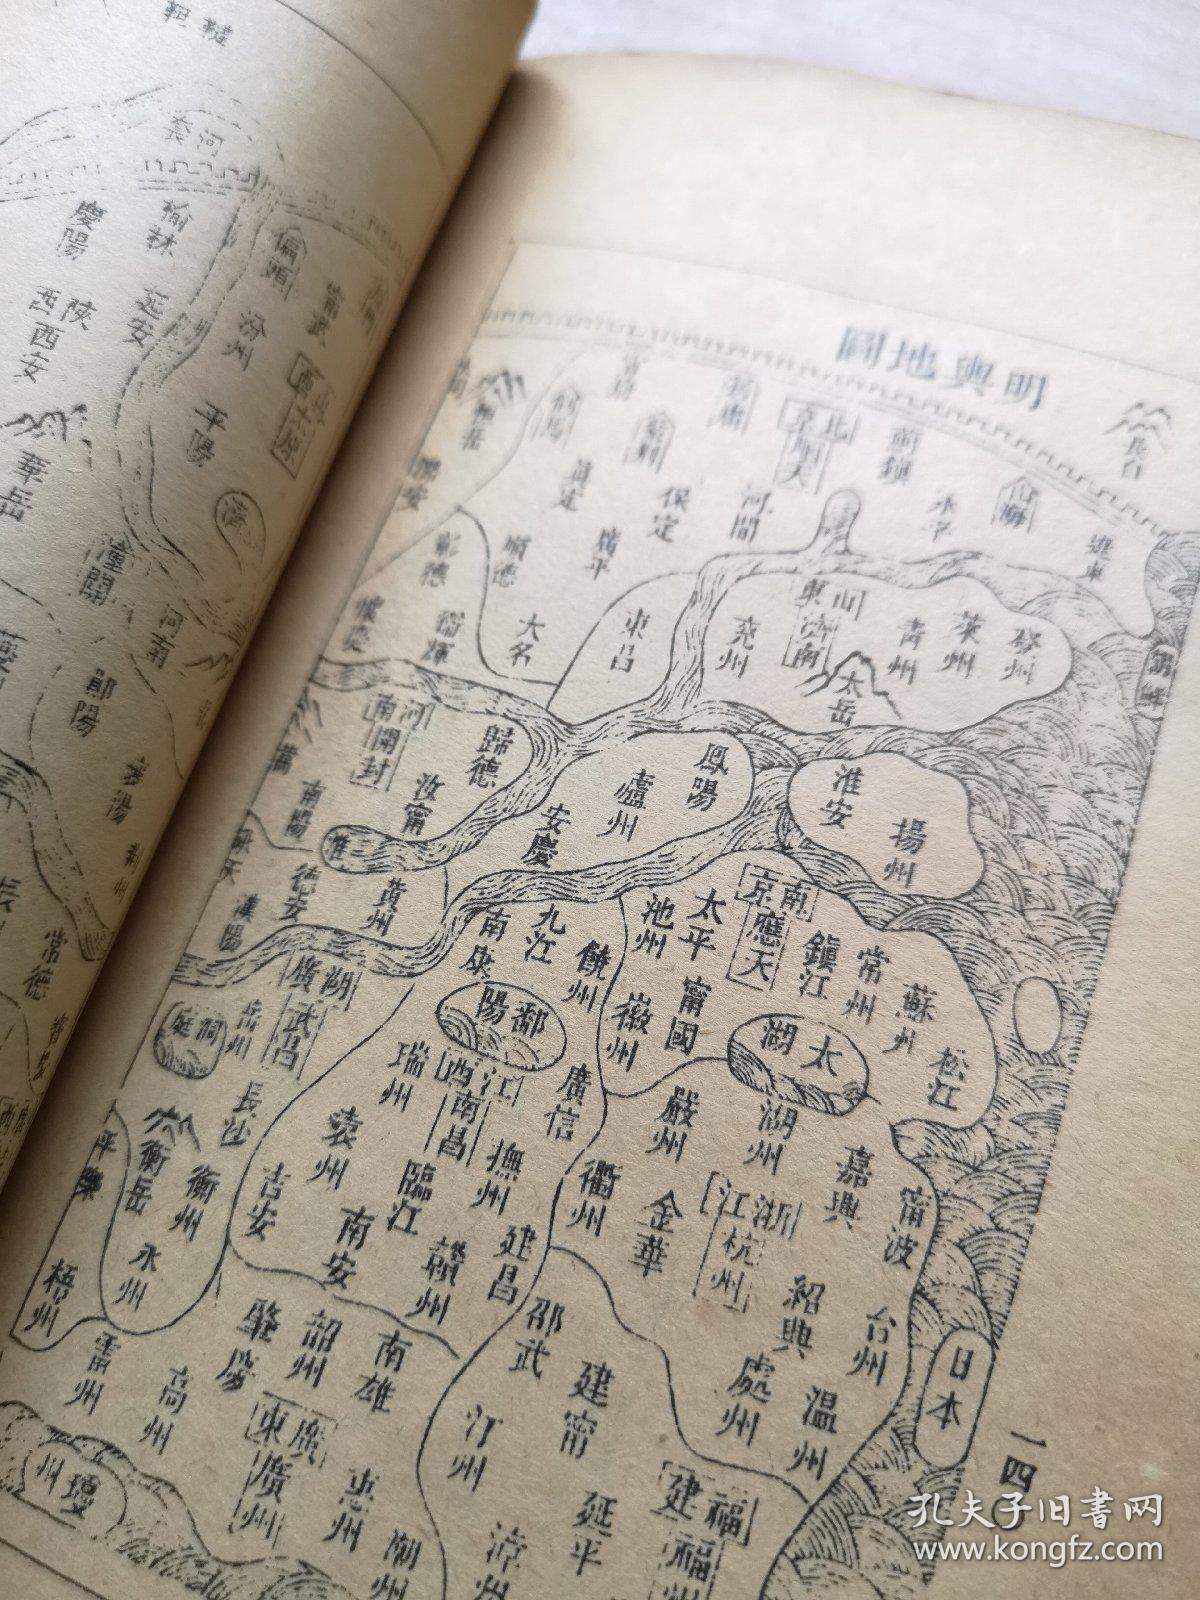 明輿地圖
長白
遼東
山海
永平
薊鎮
北京順天
河間
保定
真定
廣平
順德
大名
彰德
衛輝
懷慶
東昌
山東濟南
兗州
青州
萊州
登州
太岳
朝鮮
河南開封
歸德
汝寧
南陽
淮
鳳陽
廬州
安慶
淮安
揚州
南京應天
鎮江
常州
蘇州
松江
太平
池州
甯國
徽州
太湖
湖州
嘉興
嚴州
浙江杭州
甯波
紹興
台州
金華
衢州
處州
溫州
日本
九江
南康
饒州
鄱陽
廣信
江西南昌
瑞州
撫州
袁州
臨江
吉安
建昌
南安
贛州
黃州
德安
漢陽
承天
湖廣武昌
岳州
洞庭
長沙
衡岳
衡州
永州
平樂
梧州
邵武
建甯
汀州
延平
漳州
福建福州
南雄
韶州
肇慶
廣東廣州
惠州
潮州
高州
雷州
瓊州
一四
韃靼
河套
榆林
慶陽
延安
陝西西安
偏頭
甯武
汾州
山西太原
平陽
華岳
潼關
河南
鄖陽
襄陽
荊州
常德
孔夫子旧书网
www.kongfz.com